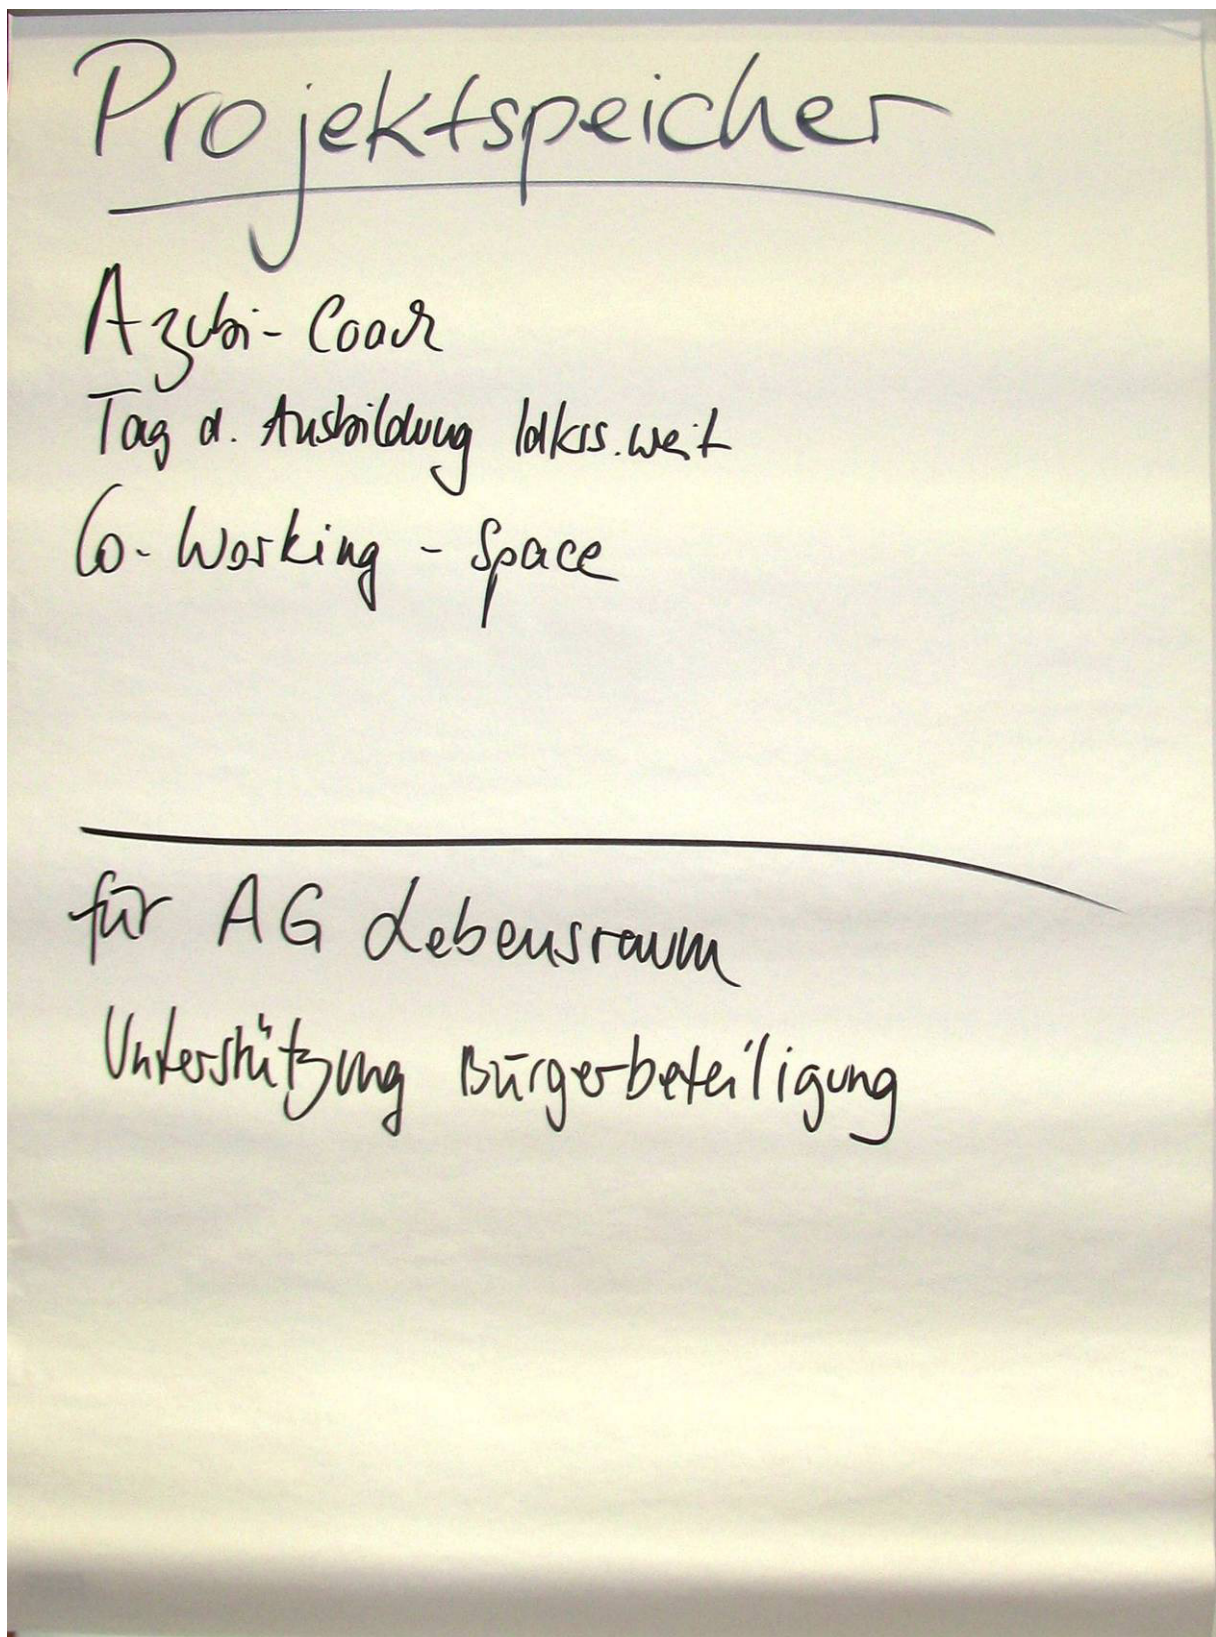 Projektspeicher
Azubi-Coach
Tag d. Ausbildung ldkrs.weit
Co-Working-Space
für AG Lebensraum
Unterstützung Bürgerbeteiligung